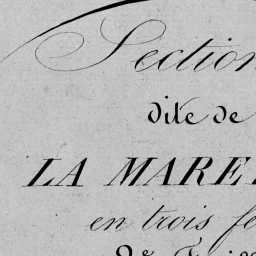 Section
dite de
LA MARE
en trois